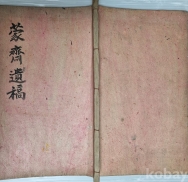 蒙齊遺稿
kobay